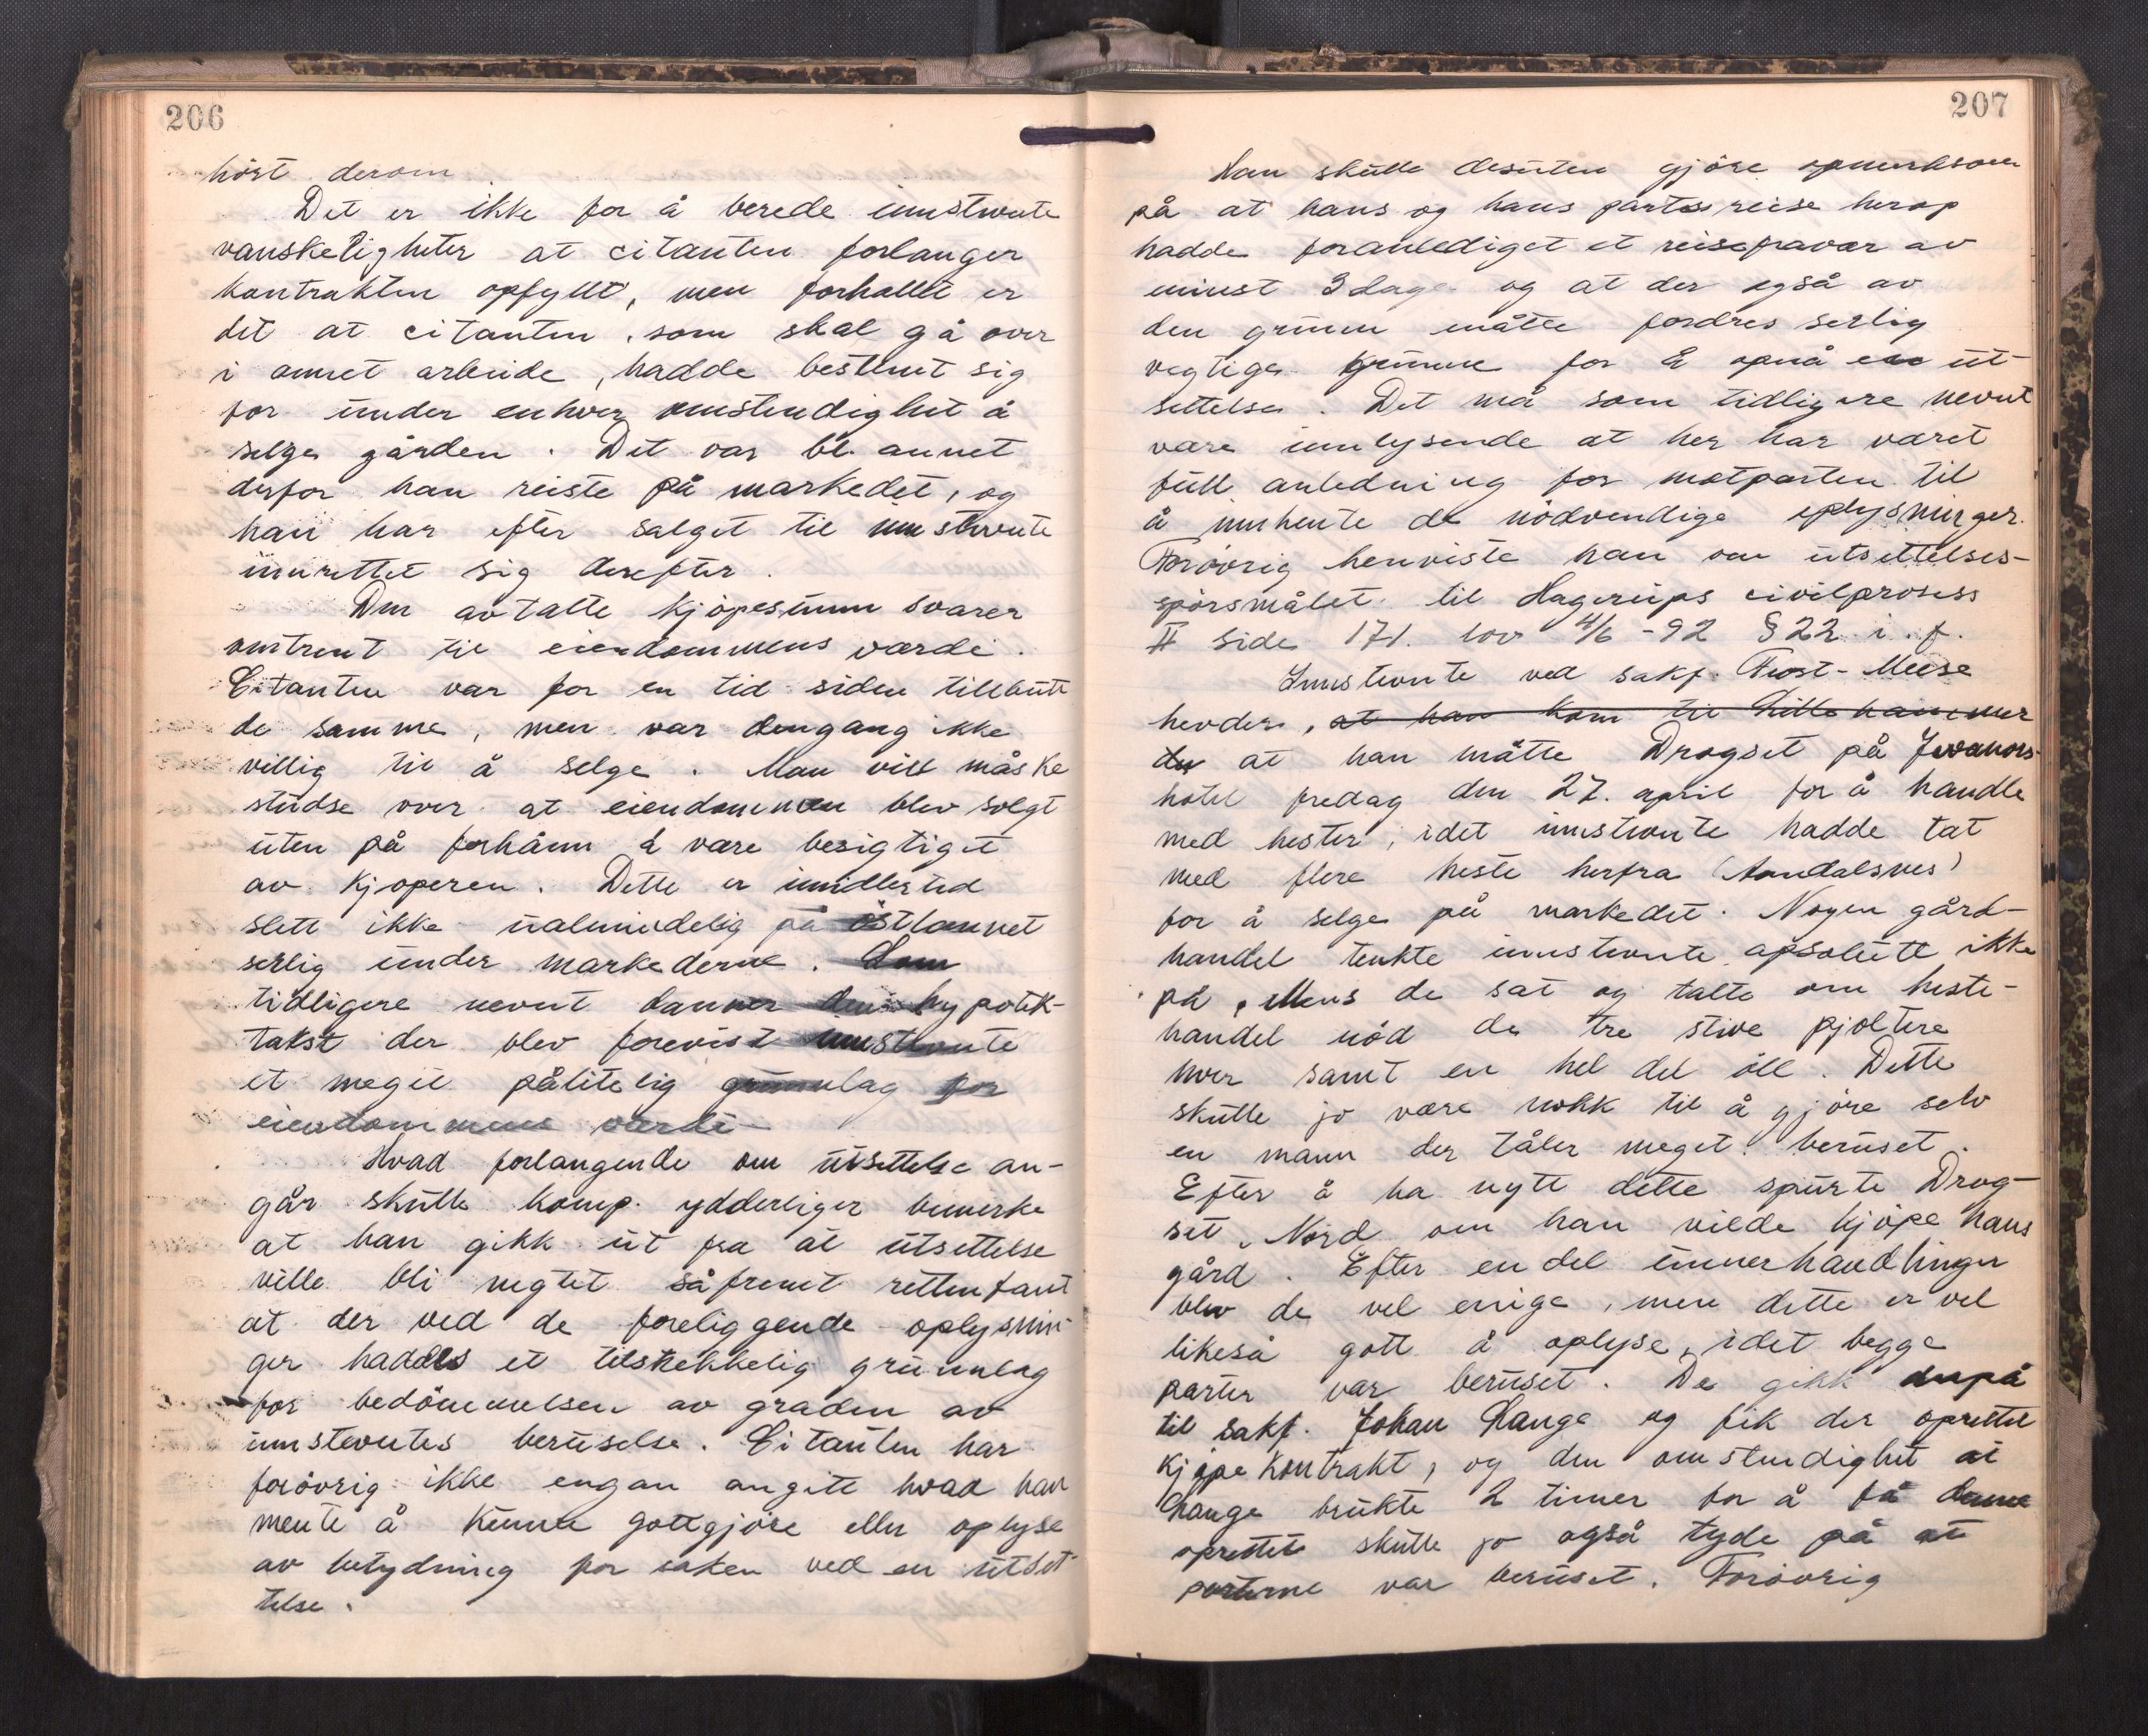 206
hört derom.
Det er ikke for å berede innstevnte
vanskeligheter at citanten forlanger
kontrakten opfyllt, men forhallet er
det at citanten, som skal gå over
i annet arbeide, hadde bestemt sig
for under enhver omstendighet å
selge gården. Det var bl. annet
derfor han reiste på markedet, og
han har efter salget til innstevnte
innrettet sig derefter.
Den avtalte kjöpesum svarer
omtrent til eiendommens værdi.
Citanten var for en tid siden tilbutt
de samme, men var dengang ikke
villig til å selge. Man vill måske
studse over at eiendommen blev solgt
uten på forhånn å være besigtiget
av kjøperen. Dette er imidlertid
slett ikke ualmindelig på östlannet
serlig under markederne. Som
tidligere nevnt danner den hypotek-
takst der blev forevist innstevnte
et meget pålitelig grunnlag for
eiendommens værdi-
Hvad forlangende om utsettelse an-
går skulle komp. ydderliger bemerke
at han gikk ut fra at utsettelse
ville bli negtet såfremt retten fant
at der ved de foreliggende oplysnin-
ger haddes et tilstrekkelig grunnlag
for bedömmelsen av graden av
innstevntes beruselse. Citanten har
forövrig ikke engan angitt hvad han
mente å kunne gottgjöre eller oplyse
av betydning for saken ved en utset-
telse.
207
Han skulle desuten gjöre opmerksom
på at hans og hans parts reise herop
hadde foranlediget et reisefravær av
minst 3 dage og at der også av
den grunn måtte fordres serlig
vegtige grunne for å opnå en ut-
settelse. Det må som tidligere nevnt
være innlysende at her har været
full anledning for motparten til
å innhente de nödvendige oplysninger.
Forövrig henviste han om utsettelses-
spörsmålet til Hagerups civilprosess
II side 171. lov 4/6 -92 § 22 i. f.
Innstevnte ved sakf. Frost-Meese
hevder, at han kom til Lillehammer
du at han måtte Drogset på Jevanors-
hotel fredag den 27. april for å handle
med hester, idet innstevnte hadde tat
med flere heste herfra (Aandalsnes)
for å selge på markedet. Nogen gård-
handel tenkte innstevnte apsolutt ikke
på. Mens de sat og talte om heste-
handel nöd de tre stive pjoltere
hver samt en hel del öll. Dette
skulle jo være nokk til å gjöre selv
en mann der tåler meget beruset.
Efter å ha nytt dette spurte Drog-
set, Nord om han vilde kjöpe hans
gård. Efter en del unnerhandlinger
blev de vel enige, men dette er vel
likeså gott å oplyse, idet begge
parter var beruset. De gikk derpå
til sakf. Johan Lange og fik der oprettet
kjøpekontrakt, og den omstendighet at
Lange brukte 2 timer for å få denne
oprettet skulle jo også tyde på at
parterne var beruset. Forövrig